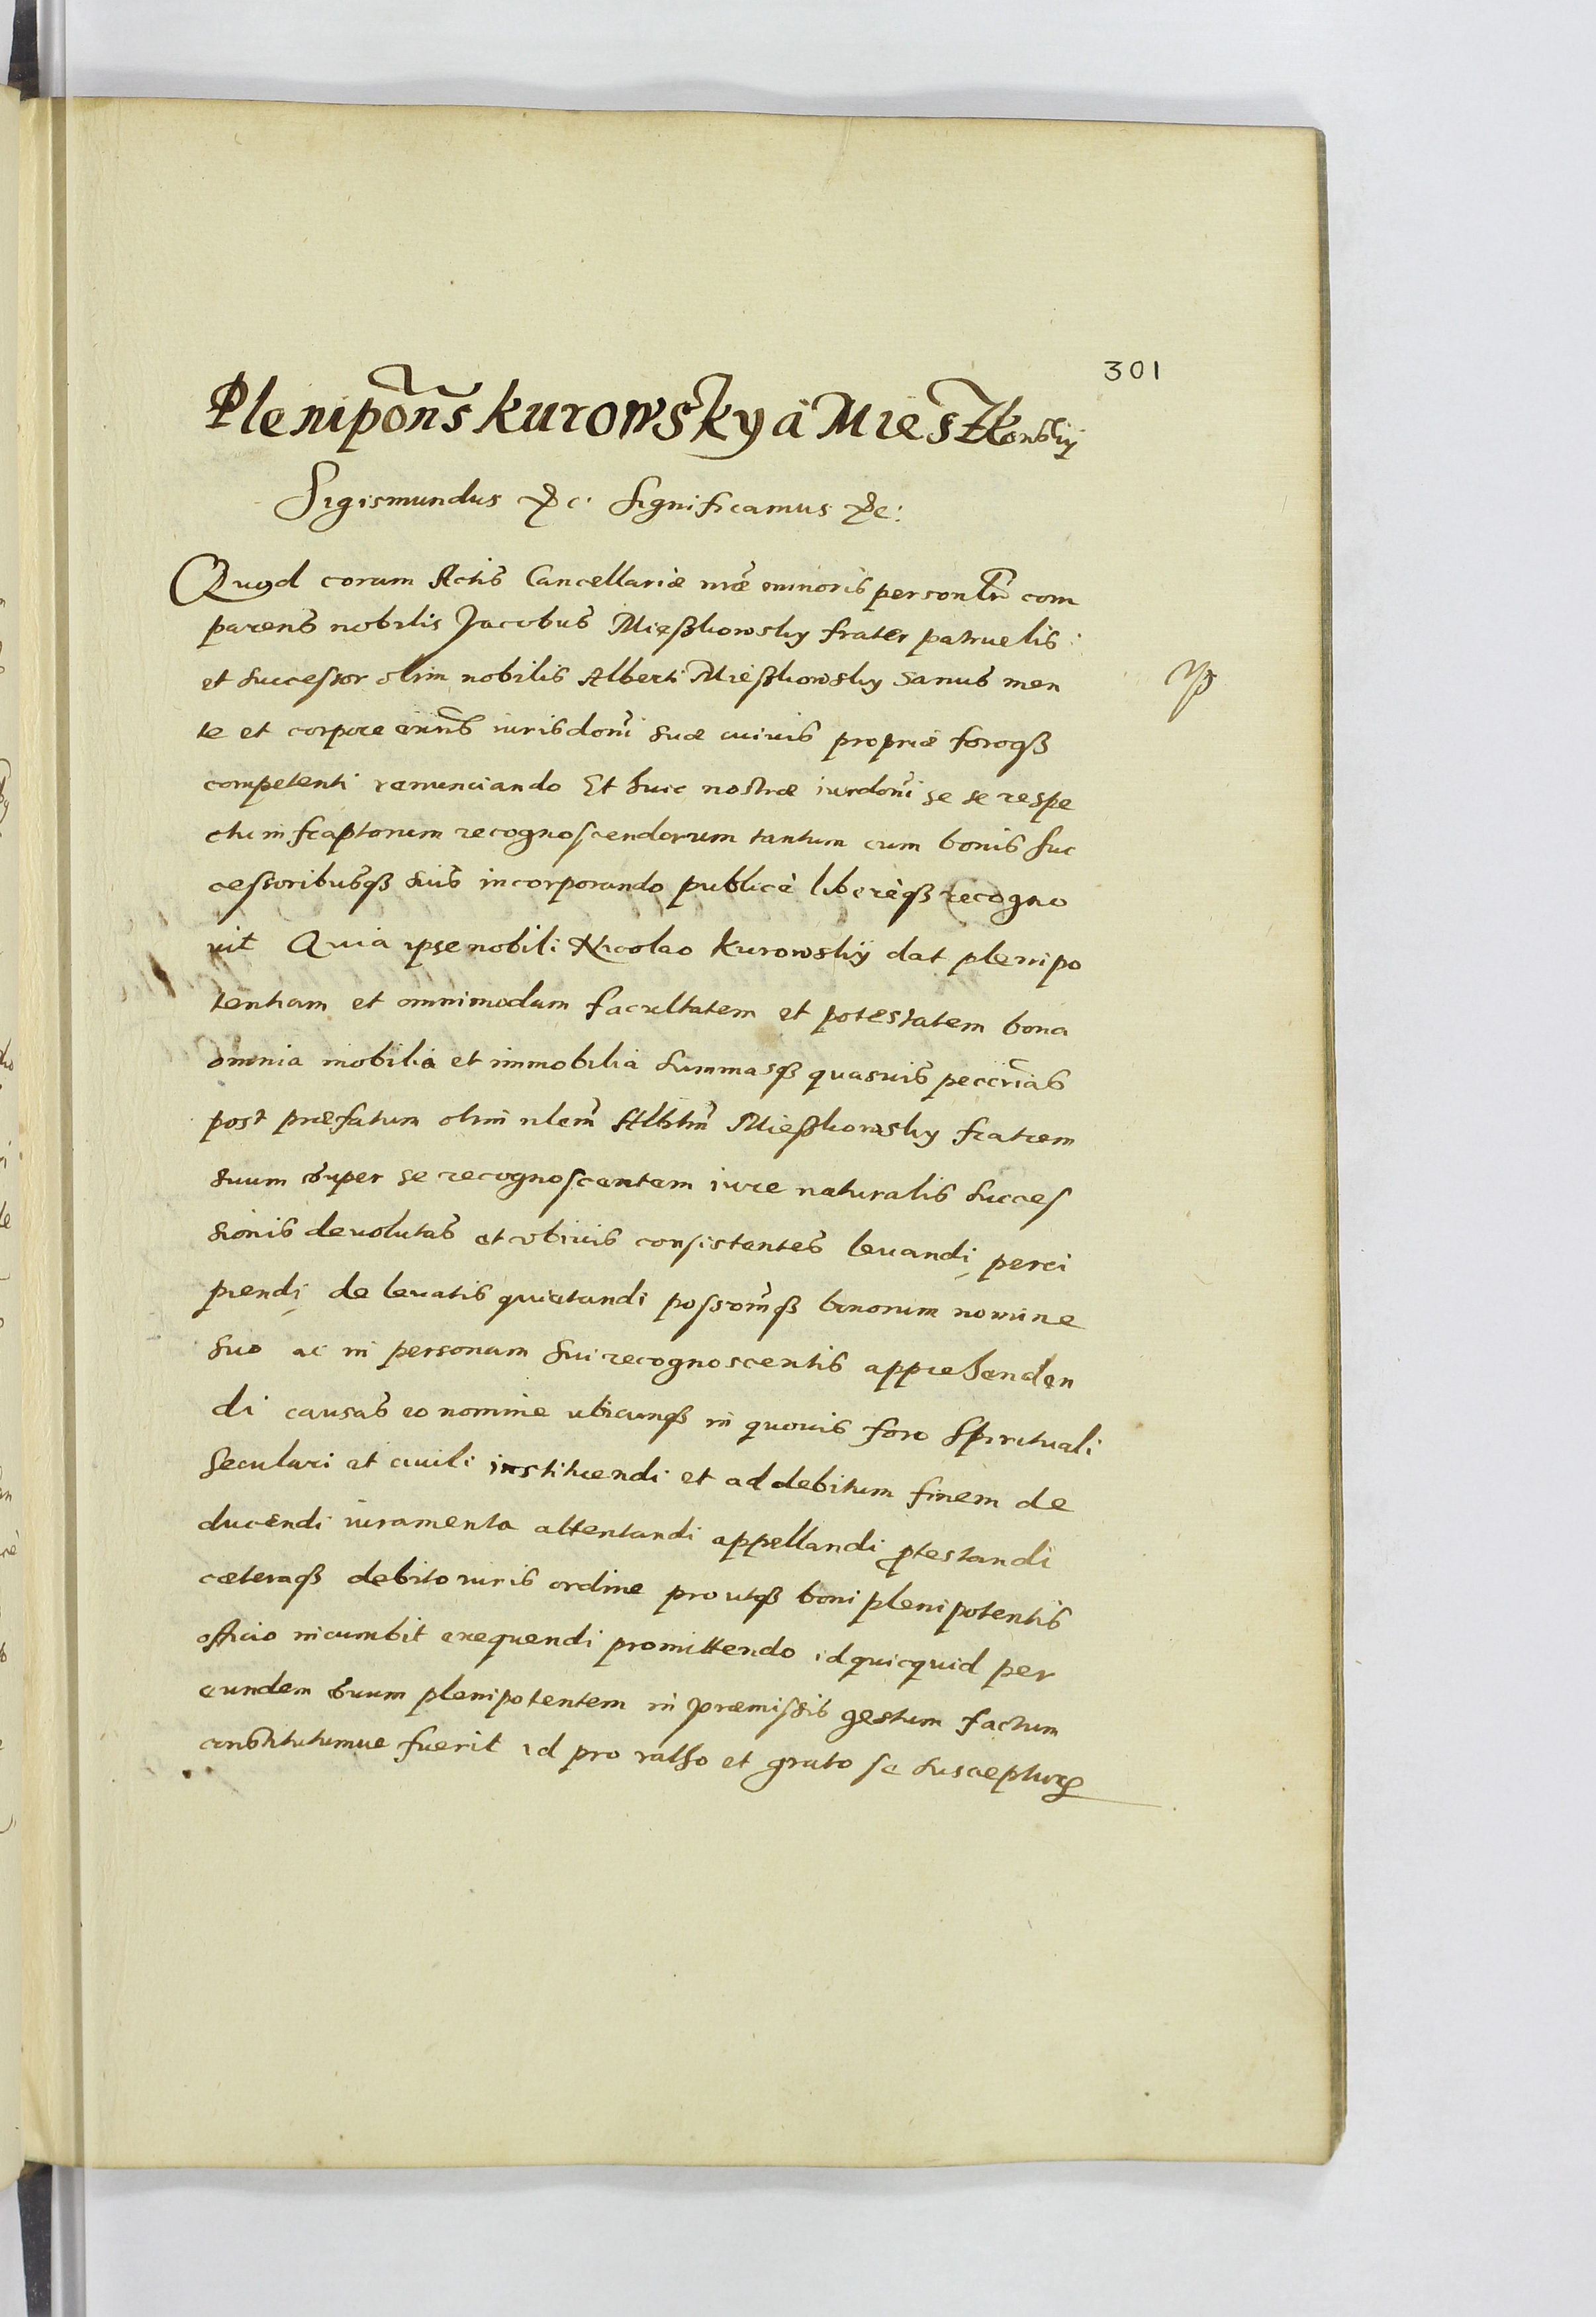 301
Plenipotñs Kurowsky à Mieszkowskÿ
Sigismundus &c. Significamus &c:
Quod coram Actis Cancellariæ nr̃æ minoris personlr̃ com
parens nobilis Jacobus Mieszkowsky frater patruelis
et successor olim nobilis Alberti Mieszkowsky sanus men
te et corpore exiñs iurisdoñi suæ cuiuis propriæ foroqȝ
competenti renunciando Et huic nostræ iurdoñi se se respe
ctu infraptorum recognoscendorum tantum cum bonis suc
cessoribusqȝ suis incorporando publicè liberèqȝ recogno
uit Quia ipse nobili Nicolao Kurowskÿ dat plenipo
tentiam et omnimodam facultatem et potestatem bona
omnia mobilia et immobilia summasqȝ quasuis pecc̃rias
post præfatum olim nlem̃ Albtm̃ Mieszkowsky fratrem
suum super se recognoscentem iure naturalis succes
sionis deuolutas et vbiuis consistentes leuandi perci
piendi de leuatis quietandi possom̃qȝ bonorum nomine
suo ac in personam sui recognoscentis apprehenden
di causas eo nomine ubicunqȝ in quouis foro Spirituali
Seculari et ciuili instituendi et ad debitum finem de
ducendi iuramenta attentandi appellandi ꝓtestandi
cæteraqȝ debito iuris ordine pro utqȝ boni plenipotentis
officio incumbit exequendi promittendo id quicquid per
eundem suum plenipotentem in præmissis gestum factum
constitutumue fuerit id pro ratho et grato se suscepturꝝ